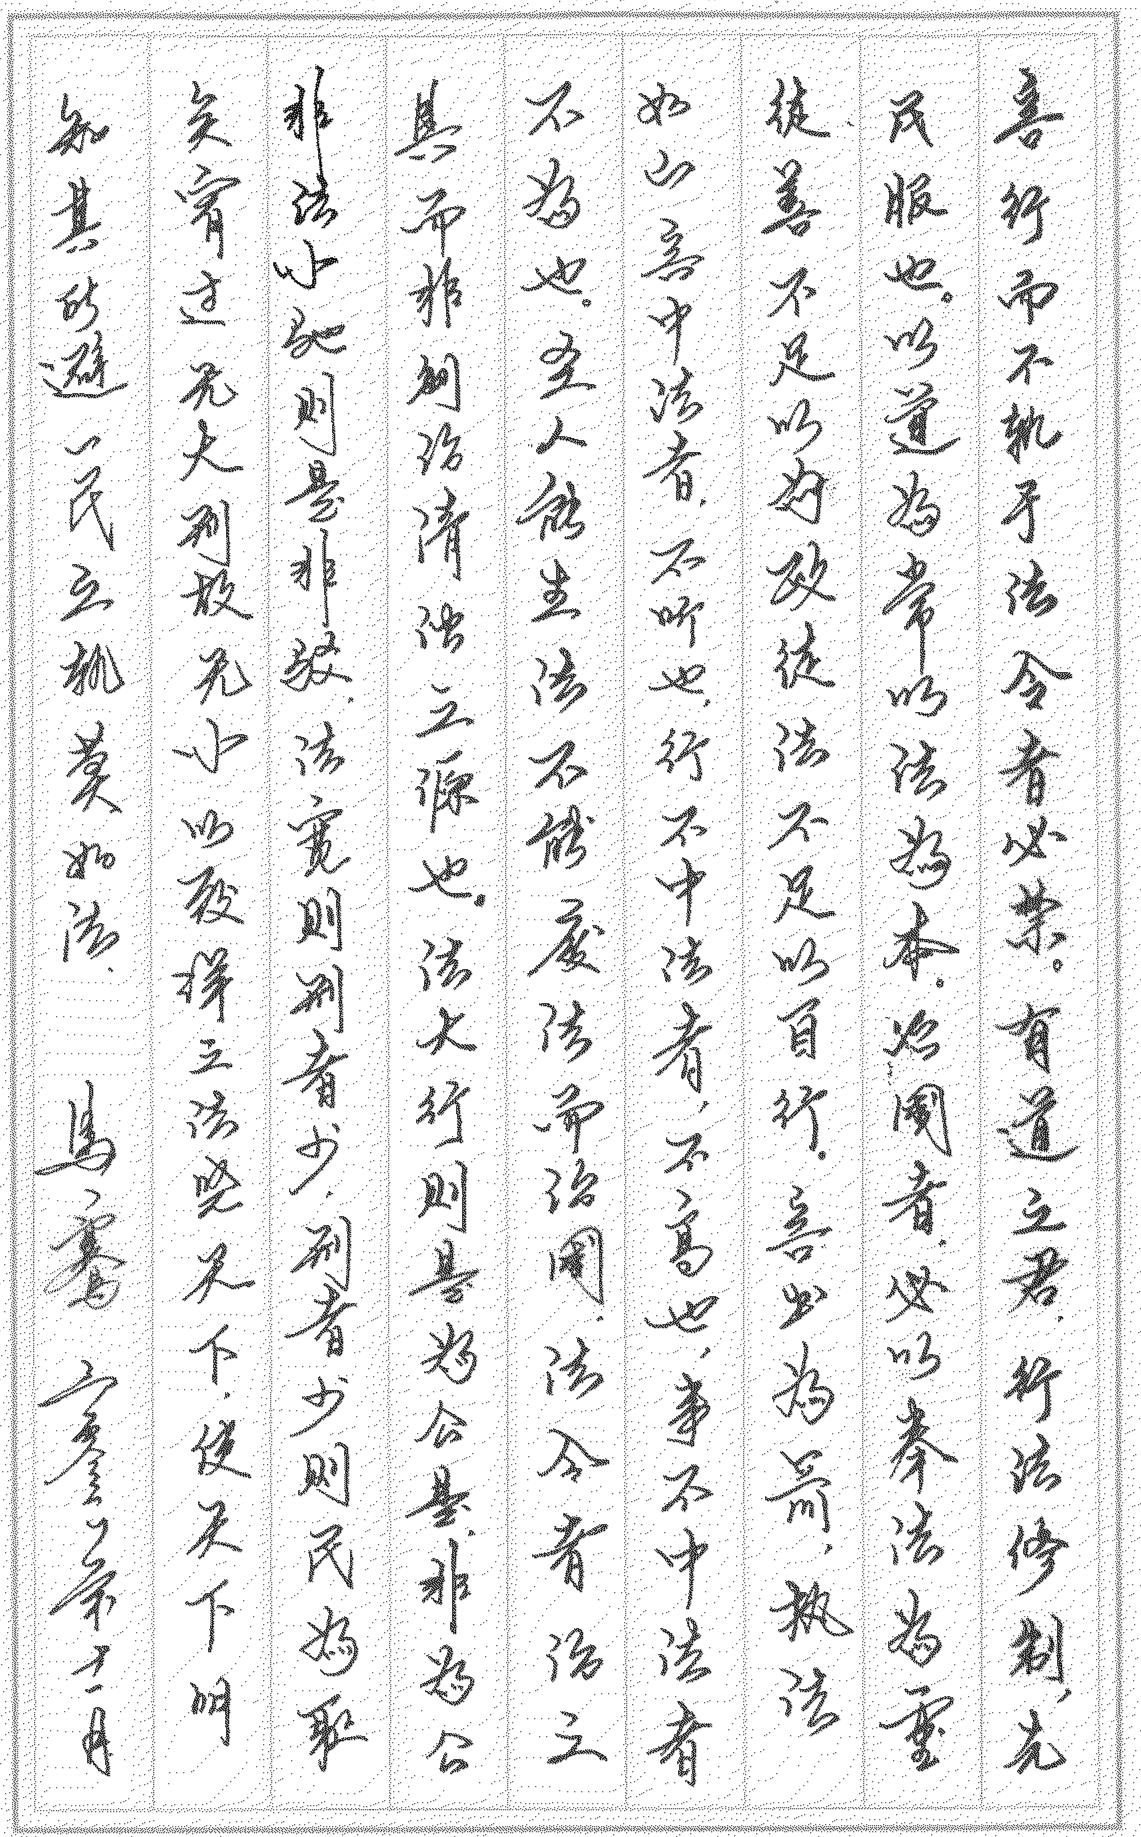 言行而不軌于法令者必禁。有道立君,行法修制,先
民服也。以道為常以法為本。治国者,必以奉法為重
徒善不足以為政徒法不足以自行。言出為箭,执法
如山言中法者,不听也,行不中法者,不高也,事不中法者
不為也。圣人能生法不能废法而治国,法令者治立
具而非制治清浊立源也。法大行則是為公是,非為公
非法小弛則是非駁,法寬則刑者少,刑者少則民為耻
矣宥过无大刑故无小以殷择立法晓天下,使天下明
知其所避以民立軌莫如法, 馬騫 二零二一年十一月